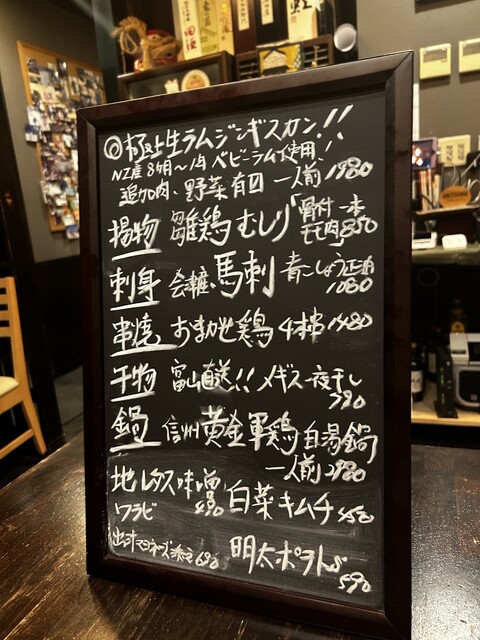 ◎極上生ラムジンギスカン!!
NZ産8ヶ月〜1年ベビーラム使用!
追加肉、野菜有 一人前1980
揚物 雛鶏むしり 骨付一本
もも肉850
刺身 会津、馬刺 青こしょう正油
1080
串焼 おまかせ鶏 4本串1480
干物 富山直送!! メギス一夜干し
790
鍋 信州黄金軍鶏白湯鍋
一人前2980
地レタス味噌 白菜キムチ450
ワラビ
出汁マヨネーズ添え690 明太ポテト
590